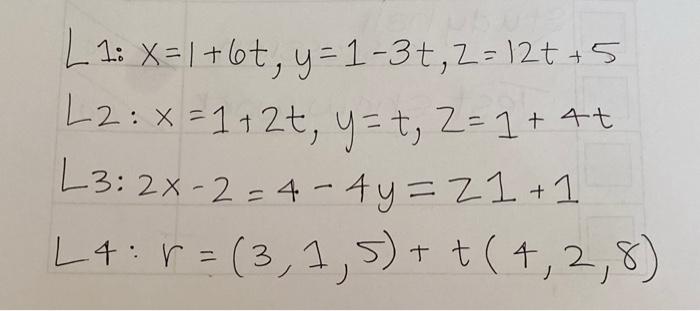 L1: x=1+6t, y=1-3t, z=12t+5
L2: x=1+2t, y=t, z=1+4t
L3: 2x-2=4-4y=z1+1
L4: r=(3,1,5)+t(4,2,8)